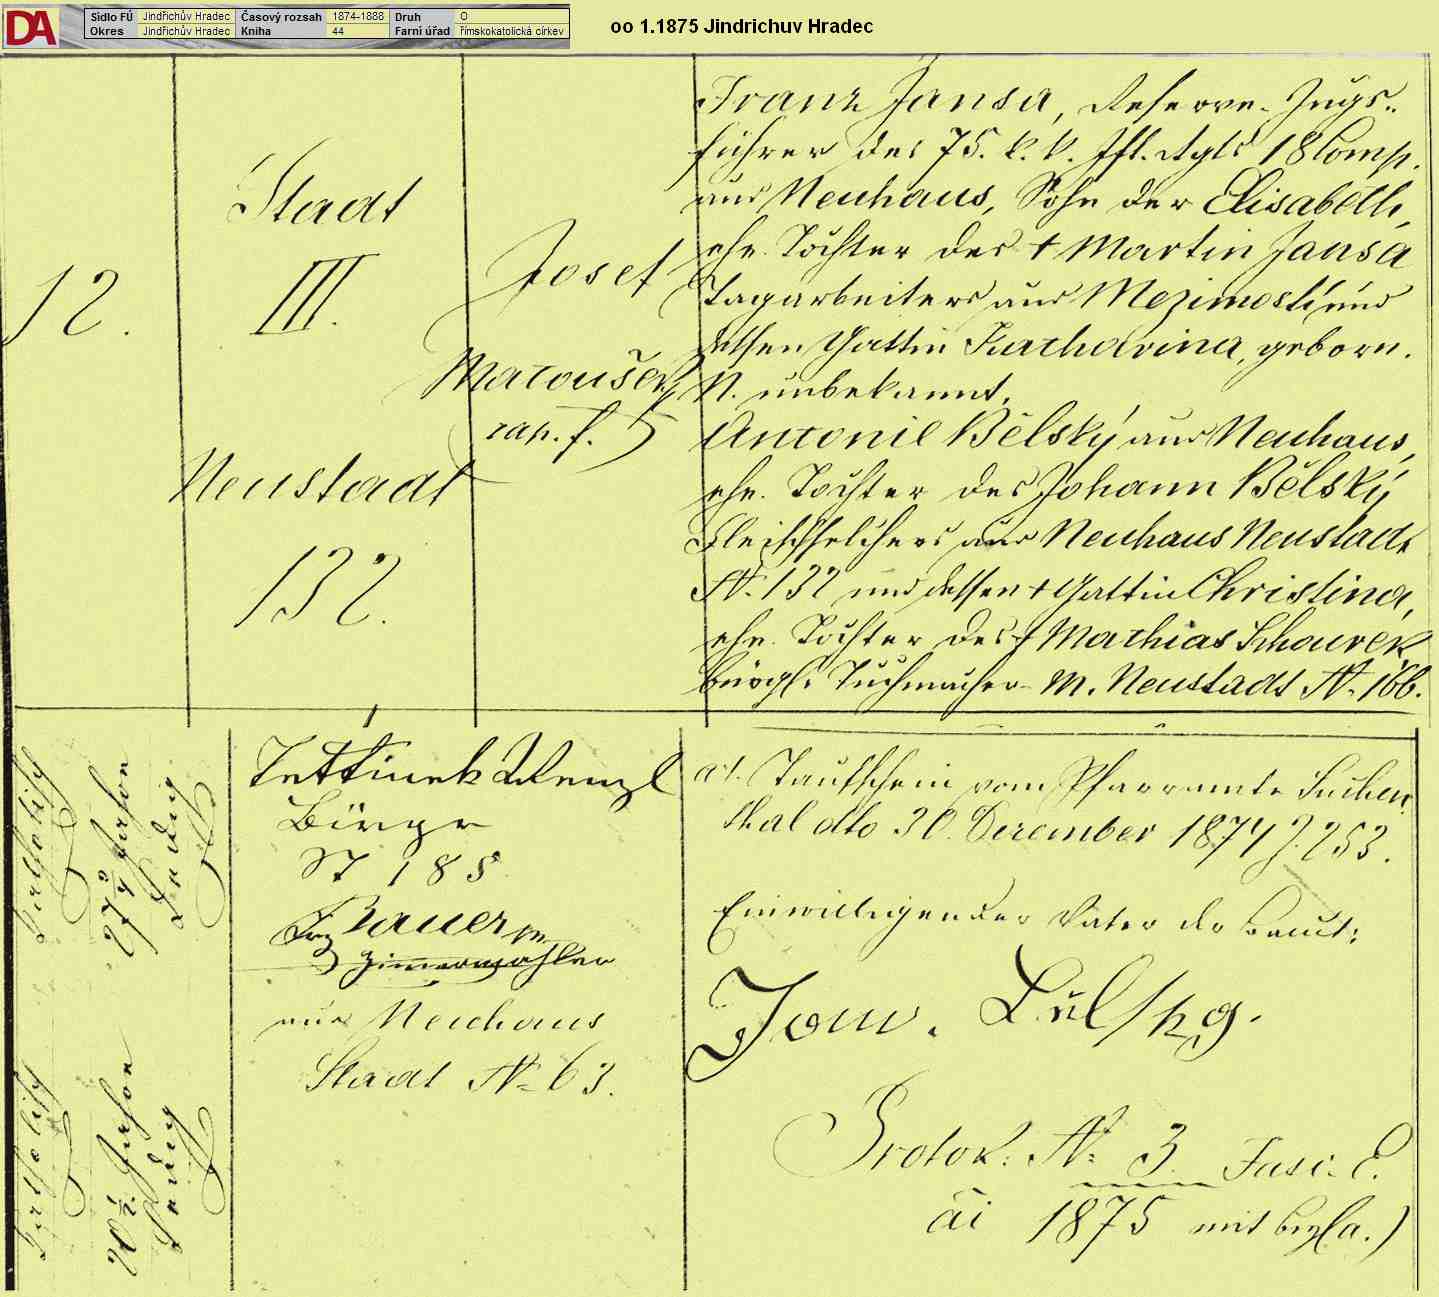 DA
Sídlo FÚ Jindřichův Hradec Časový rozsah 1874-1888 Druh O
Okres Jindřichův Hradec Kniha 44 Farní úřad římskokatolická církev
oo 1.1875 Jindrichuv Hradec
12.
Stadt
III.
Neustadt
132.
Josef
Matoušek
kap. f.
Franz Jansa, Reserve-Zugs-
führer des 75. k. k. Ift. Rgts 18 Comp.
aus Neuhaus, Sohn der Elisabeth,
ehe. Tochter des † Martin Jansa
Tagarbeiters aus Mezimosti und
dessen Gattin Katharina, geborn.
N. unbekannt.
Antonie Bělský aus Neuhaus,
ehe. Tochter des Johann Bělský
Fleischselchers aus Neuhaus Neustadt
N. 132 und dessen † Gattin Christina,
ehe. Tochter des † Mathias
bürgl. Tuchmacher m. Neustadt N. 166.
Katholisch
27 3/4 Jahre
Ledig
Katholisch
20 1/2 Jahre
Ledig
Wenzl
Bürger
N 188
Frz Bauer
Zimmermahler
aus Neuhaus
Stadt N 63.
a/. Taufschein vom Pfarramte Suchen-
thal dto 30. December 1874 J. 253.
Einwilligender Vater der Braut:
Joan. Bělsky.
Protok. N. 3 Fasc. E.
ai 1875 mit a.)